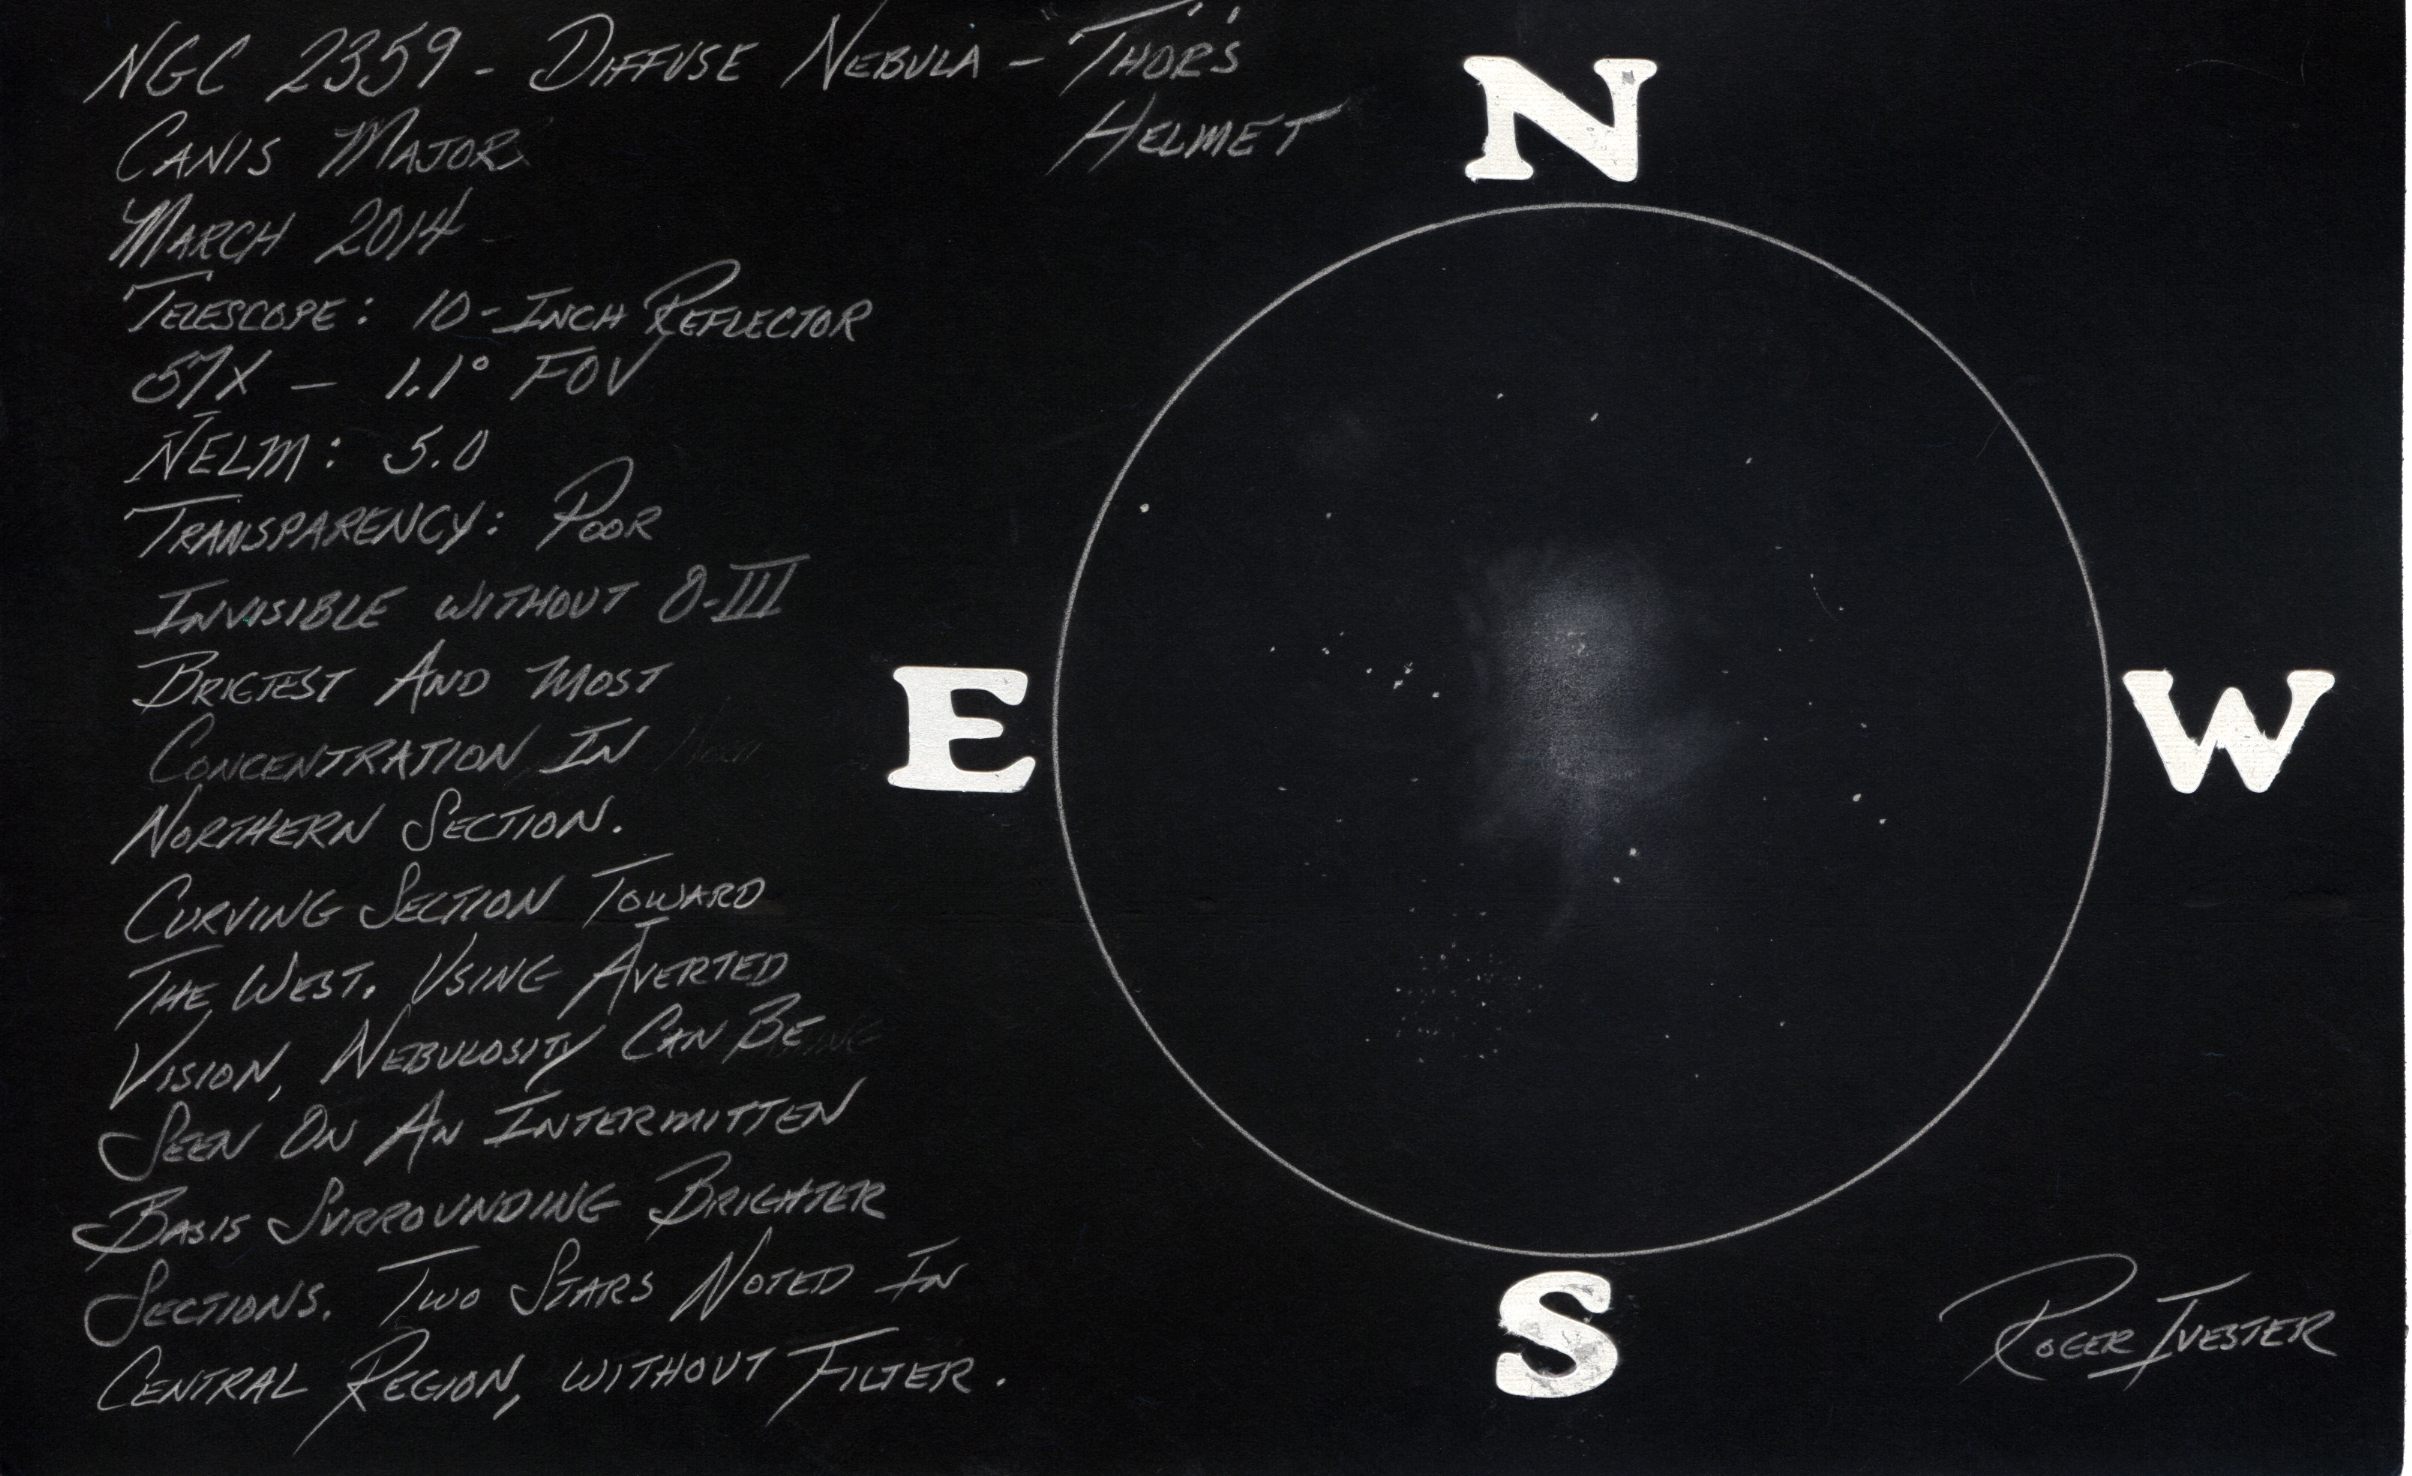 NGC 2359 - DIFFUSE NEBULA - "THOR'S
HELMET
CANIS MAJOR
MARCH 2014
TELESCOPE: 10-INCH REFLECTOR
57X - 1.1° FOV
NELM: 5.0
TRANSPARENCY: POOR
INVISIBLE WITHOUT O-III
BRIGTEST AND MOST
CONCENTRATION IN
NORTHERN SECTION.
CURVING SECTION TOWARD
THE WEST. USING AVERTED
VISION, NEBULOSITY CAN BE
SEEN ON AN INTERMITTEN
BASIS SURROUNDING BRIGHTER
SECTIONS. TWO STARS NOTED IN
CENTRAL REGION, WITHOUT FILTER.
N
E
W
S
ROGER IVESTER